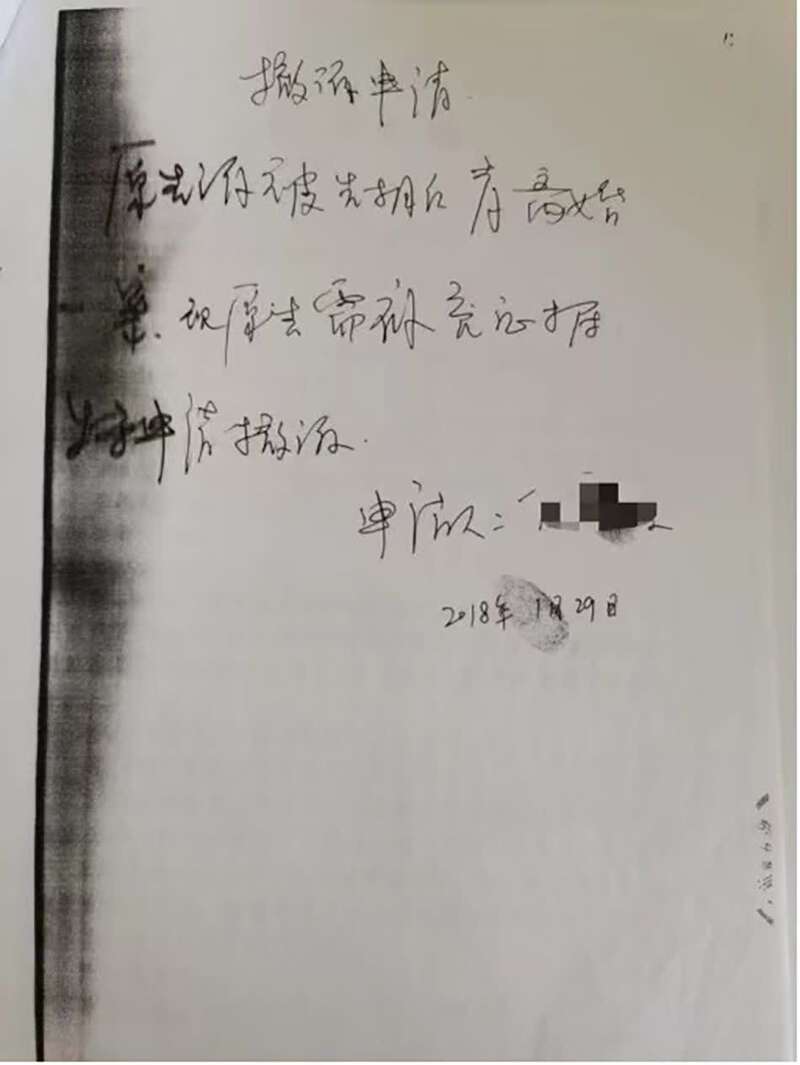 撤诉申请
原告诉被告胡 离婚
案.现原告需补充证据
特申请撤诉.
申请人:
2018年1月29日